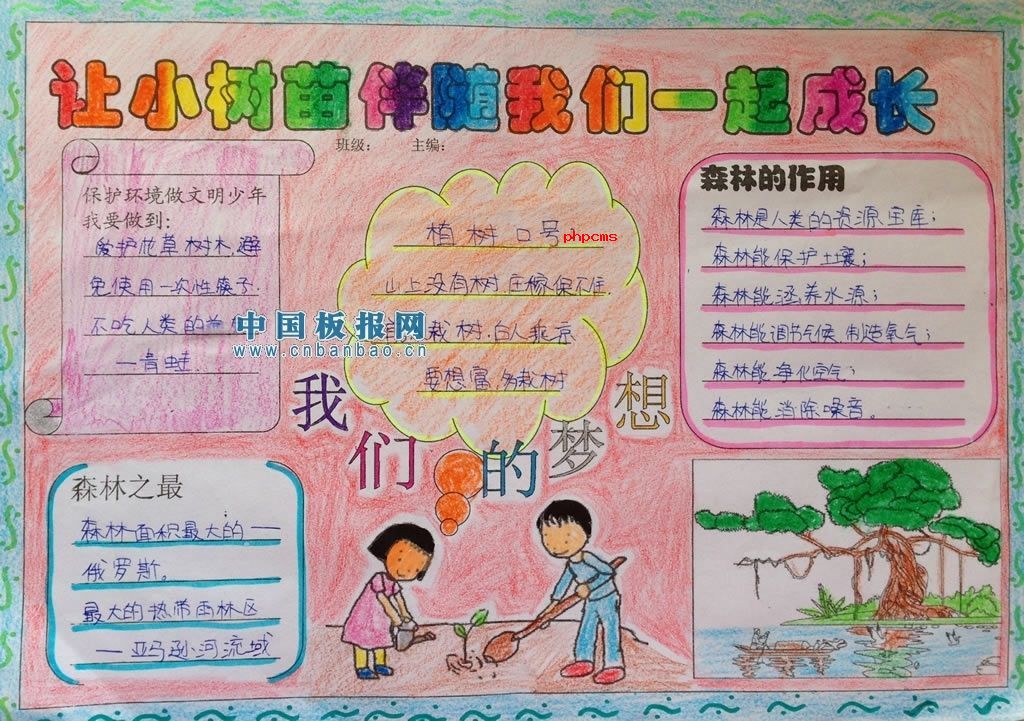 让小树苗伴随我们一起成长
班级： 主编：
保护环境做文明少年
我要做到：
爱护花草树木，避
免使用一次性筷子．
不吃人类的
—青蛙．
植树口号
phpcms
山上没有树，庄稼保不住．
栽树，百人乘凉
要想富，多栽树
中国板报网
www.cnbanbao.cn
我们的梦想
森林的作用
森林是人类的资源宝库；
森林能保护土壤；
森林能涵养水源；
森林能调节气候，制造氧气；
森林能净化空气；
森林能消除噪音。
森林之最
森林面积最大的—
俄罗斯。
最大的热带雨林区
—亚马逊河流域